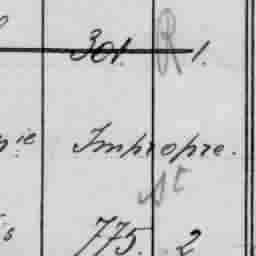 301. R 1.
ie Impropre.
St
s 775. 2